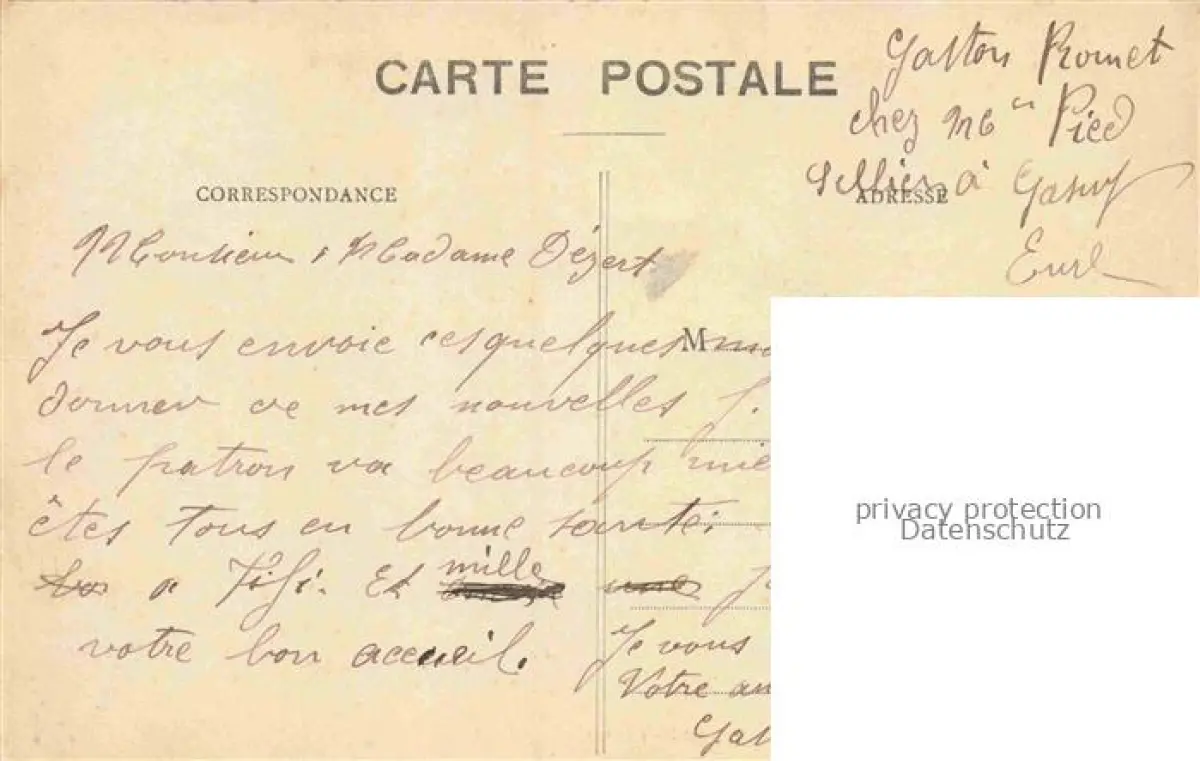 CARTE POSTALE
Gaston Romet
chez Mme Pied
Sellier à Gasny
Eure
CORRESPONDANCE
ADRESSE
Monsieur & Madame Dézert
Je vous envoie ces quelques
M
donner de mes nouvelles J.
le patron va beaucoup mie
êtes tous en bonne santé.
a Fifi. Et mille
votre bon accueil.
Je vous
Votre am
Gas
privacy protection
Datenschutz